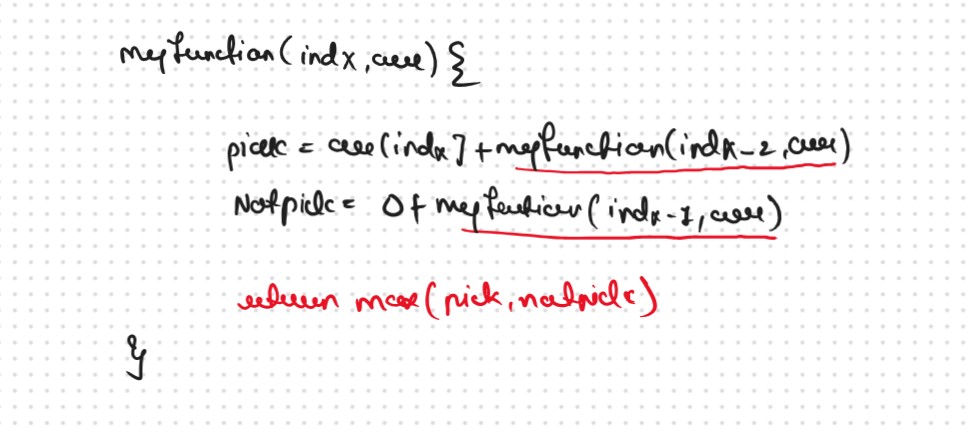 myfunction(indx,arr) {
pick = arr[indx] + myfunction(indx-2,arr)
Notpick = 0 + myfunction(indx-1,arr)
return max(pick,notpick)
}